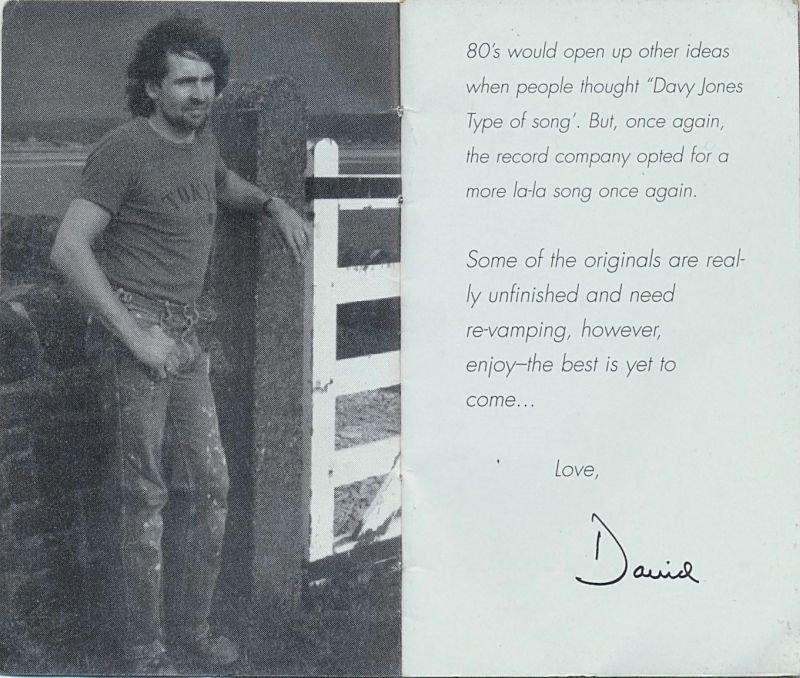 TOKY
80's would open up other ideas
when people thought "Davy Jones
Type of song'. But, once again,
the record company opted for a
more la-la song once again.
Some of the originals are real-
ly unfinished and need
re-vamping, however,
enjoy–the best is yet to
come...
Love,
David